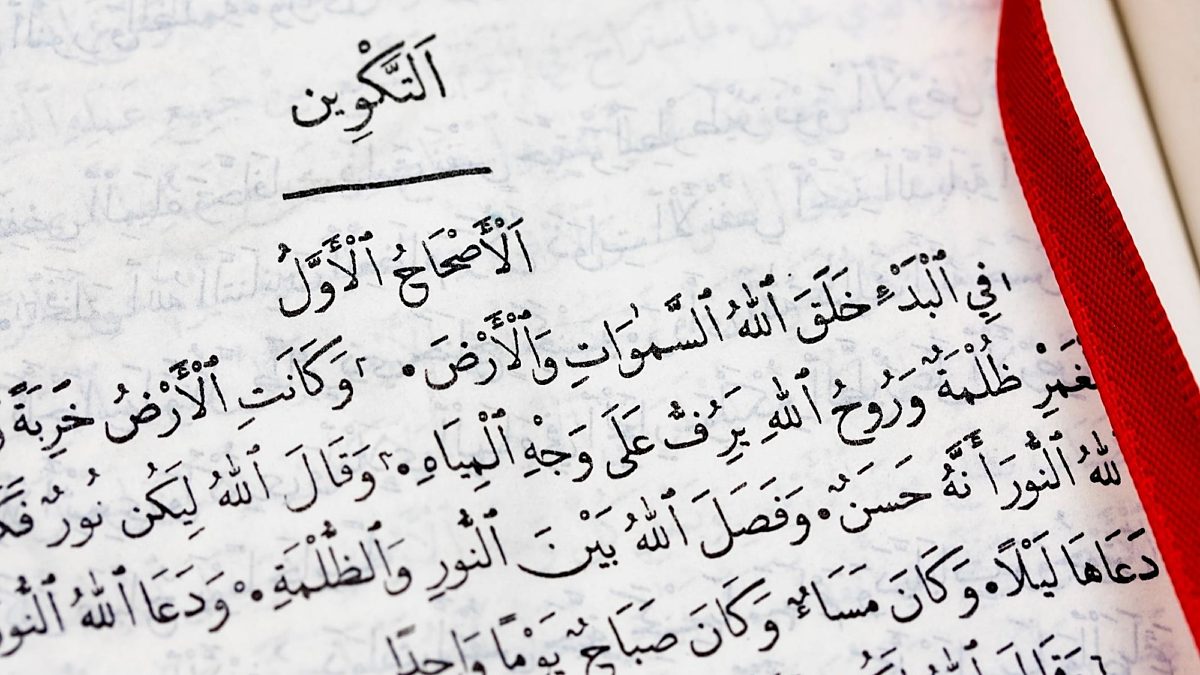 اَلتَّكْوِين
اَلْأَصْحَاحُ ٱلْأَوَّلُ
١ فِي ٱلْبَدْءِ خَلَقَ ٱللهُ ٱلسَّمٰوَاتِ وَٱلْأَرْضَ. ٢ وَكَانَتِ ٱلْأَرْضُ خَرِبَةً
ظُلْمَةٌ وَرُوحُ ٱللهِ يَرِفُّ عَلَى وَجْهِ ٱلْمِيَاهِ. ٣ وَقَالَ ٱللهُ لِيَكُن نُورٌ
ٱلنُّورَ أَنَّهُ حَسَنٌ. وَفَصَلَ ٱللهُ بَيْنَ ٱلنُّورِ وَٱلظُّلْمَةِ. ٥ وَدَعَا ٱللهُ
دَعَاهَا لَيْلًا. وَكَانَ مَسَاءٌ وَكَانَ صَبَاحٌ يَوْمًا وَاحِدًا
٦ وَقَالَ ٱللهُ